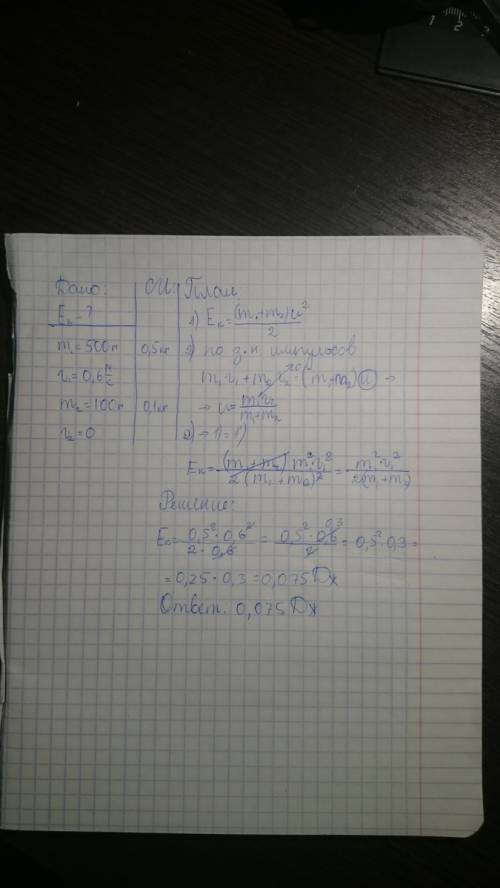 1 2 3
Дано:
Eк - ?
m₁ = 500 г
v₁ = 0,6 м/с
m₂ = 100 г
v₂ = 0
СИ:
0,5 кг
0,1 кг
План
1) Eк = (m₁+m₂)u²/2
2) по з-н импульсов
m₁v₁ + m₂v₂ = (m₁+m₂)u →
→ u = m₁v₁/(m₁+m₂)
2) → 1) = 1)
Eк = (m₁+m₂) m₁²·v₁²/2(m₁+m₂)² = m₁²·v₁²/2(m₁+m₂)
Решение:
Eк = 0,5²·0,6²/2·0,6 = 0,5²·0,6/2 = 0,5²·0,3 =
0,3
= 0,25·0,3 = 0,075 Дж
Ответ: 0,075 Дж